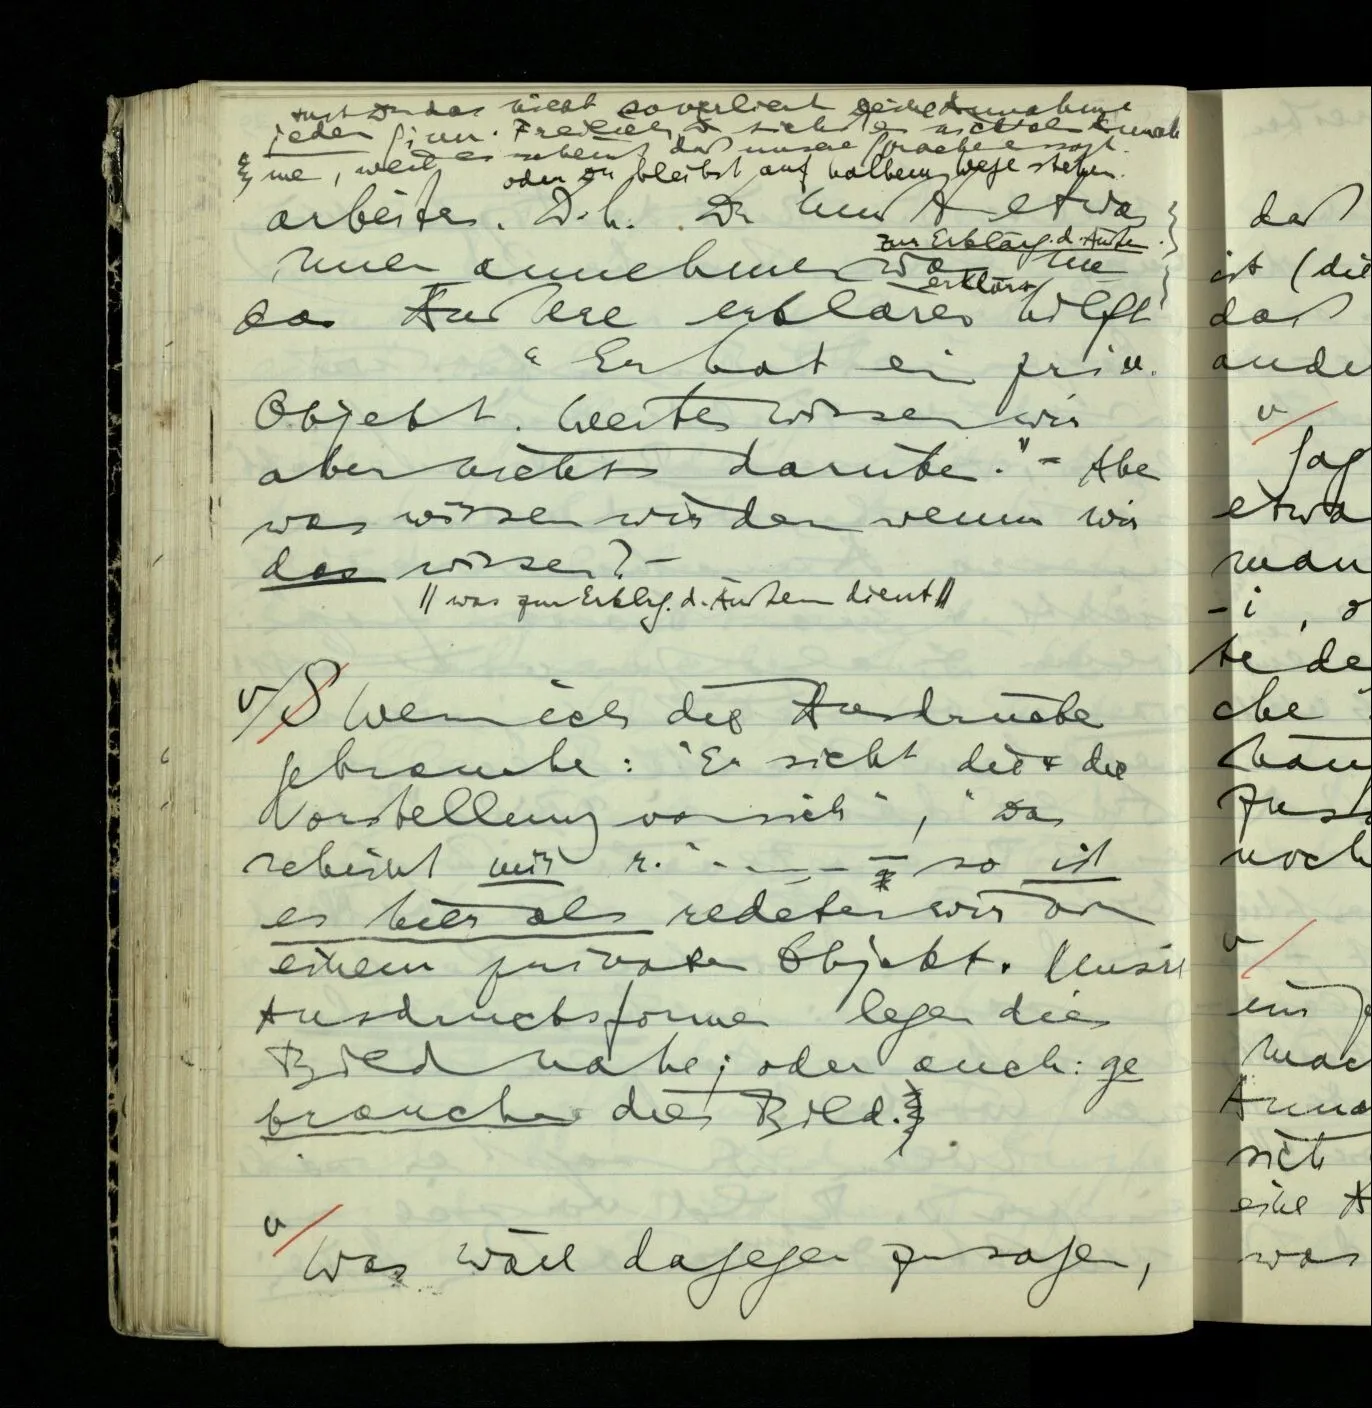 tust Du das nicht so verliert Deine Annahme
jeden Sinn. Freilich sieht es nicht als Annah
me, weil es scheint daß unsere Sprache es sagt.
oder Du bleibst auf halbem Wege stehen.
arbeiten. D.h. Du mußt etwas
zur Erklärg. d. Äußern
nur annehmen was
erklärt
das Äußere erklären hilft
“Er hat ein priv.
Objekt. Weiter wissen wir
aber nichts darüber.” – Aber
was wissen wir denn wenn wir
das wissen? –
// was zur Erklrg. d. Äußern dient //
v / S Wenn ich die Ausdrücke
gebrauche: “Er sieht die & die
Vorstellung vor sich”, “Das
scheint mir r.” – . — – – so ist
es hier als redeten wir von
einem privaten Objekt. Unsre
Ausdrucksformen legen dies
Bild nahe; oder auch: ge
brauchen dies Bild.
v /
Was wäre dagegen zu sagen,
daß
ist (die
daß
ande
v /
Sag
etwa
man
– i, o
te de
che
noch
v /
ein
mac
Anna
sich
eine A
was